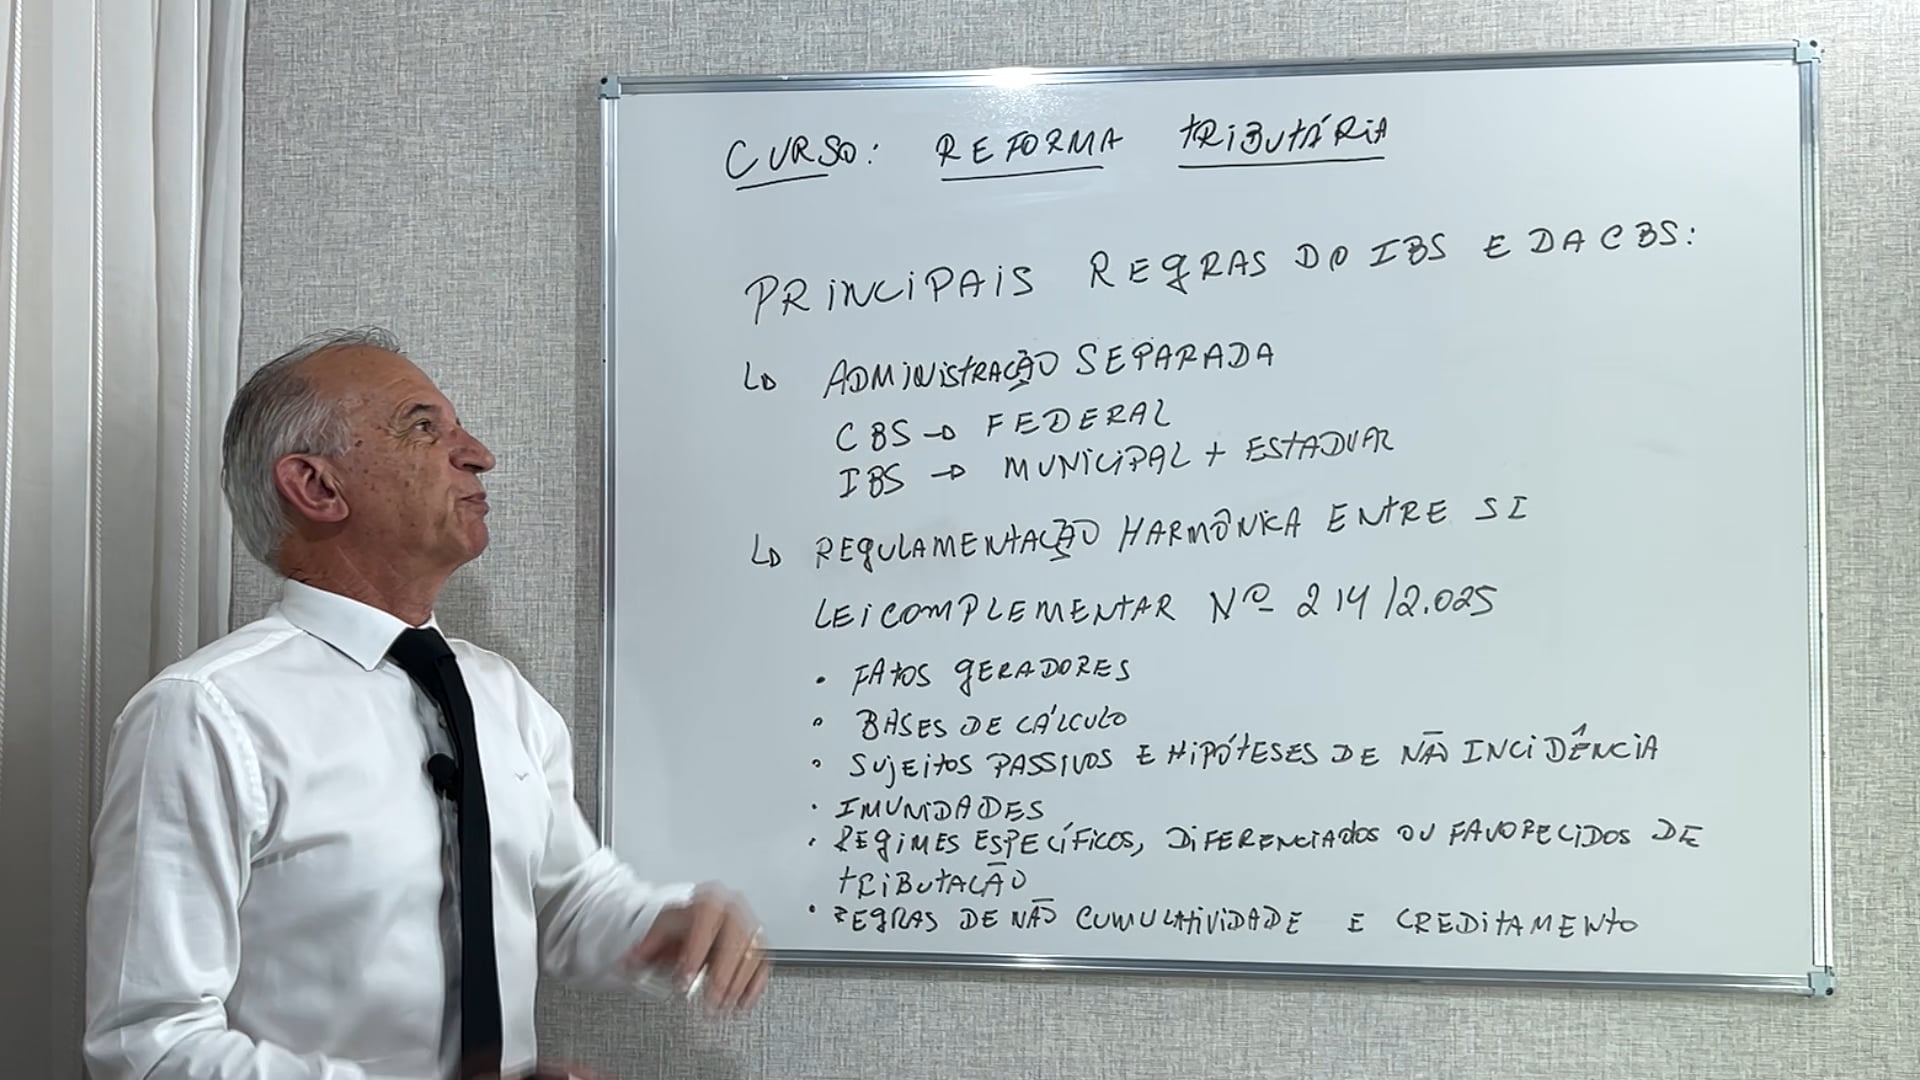 CURSO: REFORMA TRIBUTÁRIA
PRINCIPAIS REGRAS DO IBS E DA CBS:
↳ ADMINISTRAÇÃO SEPARADA
CBS → FEDERAL
IBS → MUNICIPAL + ESTADUAL
↳ REGULAMENTAÇÃO HARMÔNICA ENTRE SI
LEI COMPLEMENTAR Nº 214/2.025
• FATOS GERADORES
• BASES DE CÁLCULO
• SUJEITOS PASSIVOS E HIPÓTESES DE NÃO INCIDÊNCIA
• IMUNIDADES
• REGIMES ESPECÍFICOS, DIFERENCIADOS OU FAVORECIDOS DE
TRIBUTAÇÃO
• REGRAS DE NÃO CUMULATIVIDADE E CREDITAMENTO